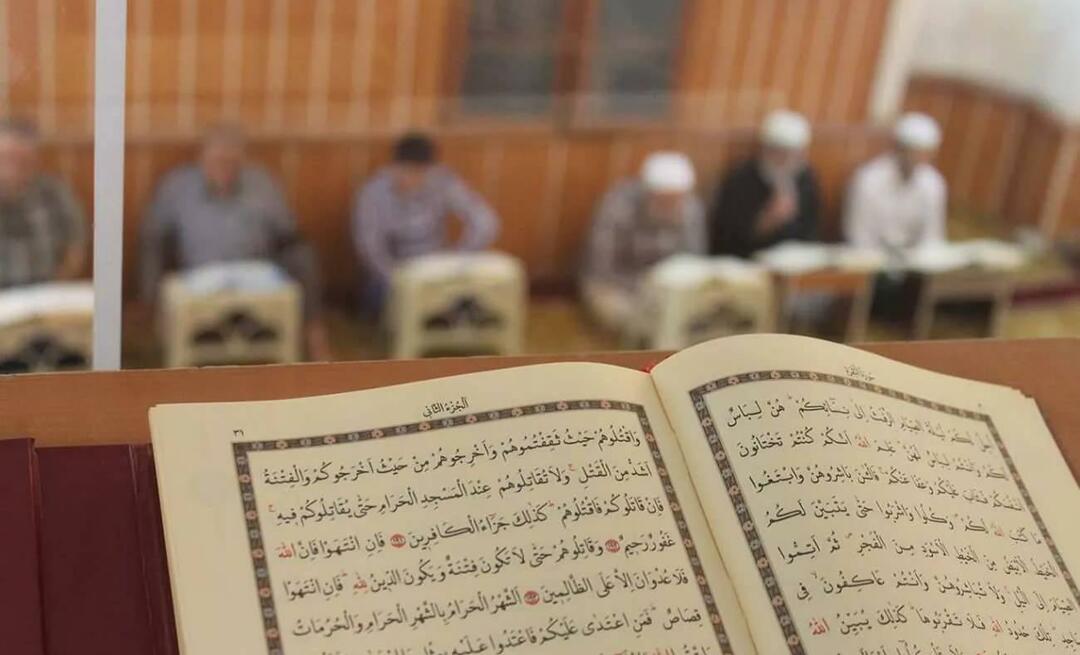 سُورَةُ الْبَقَرَةِ
اُحِلَّ لَكُمْ لَيْلَةَ الصِّيَامِ الرَّفَثُ اِلٰى نِسَٓائِكُمْ هُنَّ لِبَاسٌ
لَكُمْ وَاَنْتُمْ لِبَاسٌ لَهُنَّ عَلِمَ اللّٰهُ اَنَّكُمْ كُنْتُمْ تَخْتَانُونَ
اَنْفُسَكُمْ فَتَابَ عَلَيْكُمْ وَعَفَا عَنْكُمْ فَالْـٰٔنَ بَاشِرُوهُنَّ وَابْتَغُوا
مَا كَتَبَ اللّٰهُ لَكُمْ وَكُلُوا وَاشْرَبُوا حَتّٰى يَتَبَيَّنَ لَكُمُ
الْخَيْطُ الْاَبْيَضُ مِنَ الْخَيْطِ الْاَسْوَدِ مِنَ الْفَجْرِ ثُمَّ اَتِمُّوا
الصِّيَامَ اِلَى الَّيْلِ وَلَا تُبَاشِرُوهُنَّ وَاَنْتُمْ عَاكِفُونَ فِي
تِلْكَ حُدُودُ اللّٰهِ فَلَا تَقْرَبُوهَا كَذٰلِكَ يُبَيِّنُ اللّٰهُ
اَلْجُزْءُ الثَّانِي
وَاقْتُلُوهُمْ حَيْثُ ثَقِفْتُمُوهُمْ وَاَخْرِجُوهُمْ مِنْ حَيْثُ اَخْرَجُوكُمْ وَالْفِتْنَةُ
اَشَدُّ مِنَ الْقَتْلِ وَلَا تُقَاتِلُوهُمْ عِنْدَ الْمَسْجِدِ الْحَرَامِ حَتّٰى يُقَاتِلُوكُمْ فِيهِ
فَاِنْ قَاتَلُوكُمْ فَاقْتُلُوهُمْ كَذٰلِكَ جَزَٓاءُ الْكَافِرِينَ ﴿١٩١﴾ فَاِنِ انْتَهَوْا فَاِنَّ اللّٰهَ
غَفُورٌ رَحِيمٌ ﴿١٩٢﴾ وَقَاتِلُوهُمْ حَتّٰى لَا تَكُونَ فِتْنَةٌ وَيَكُونَ الدِّينُ لِلّٰهِ فَاِنِ انْتَهَوْا
فَلَا عُدْوَانَ اِلَّا عَلَى الظَّالِمِينَ ﴿١٩٣﴾ اَلشَّهْرُ الْحَرَامُ بِالشَّهْرِ الْحَرَامِ وَالْحُرُمَاتُ
قِصَاصٌ فَمَنِ اعْتَدٰى عَلَيْكُمْ فَاعْتَدُوا عَلَيْهِ بِمِثْلِ